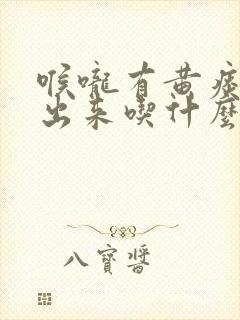 喉嚨有黄痰
出来喫什麼
八寶醬